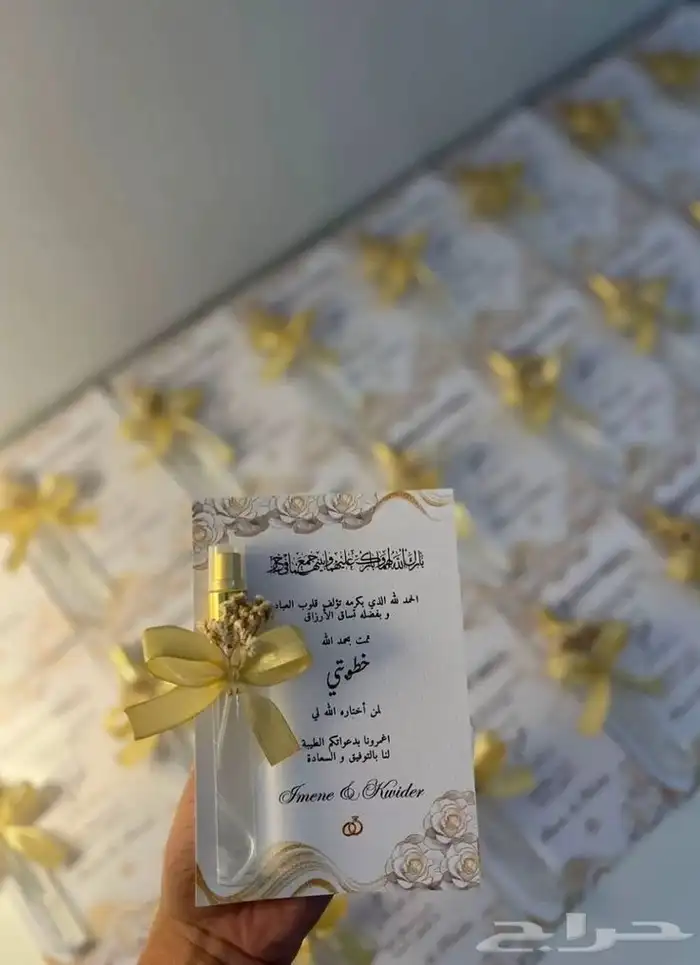 بارك الله لهما وبارك عليهما وجمع بينهما في خير
الحمد لله الذي بكرمه تؤلف قلوب العباد
و بفضله تساق الأرزاق
تمت بحمد الله
خطوبتي
لمن أختاره الله لي
اغمرونا بدعواتكم الطيبة
لنا بالتوفيق و السعادة
Imene & Kwider
حراج